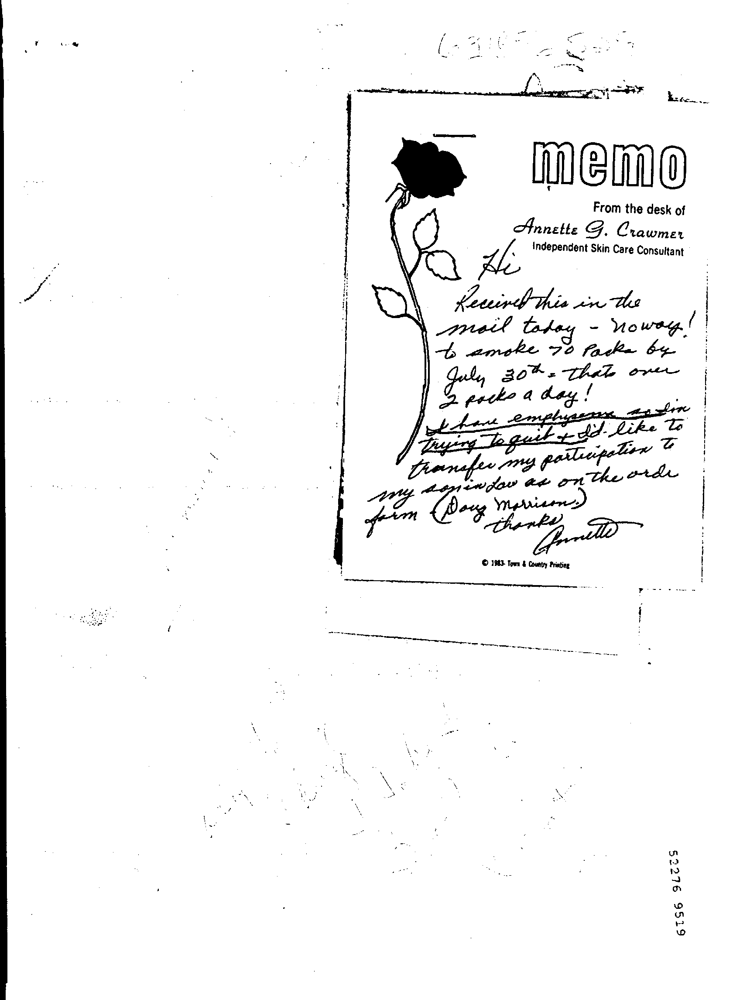 memo
From the desk of
Annette G. Crawmer
Independent Skin Care Consultant
Hi
Received this in the
mail today - no way!
to smoke 70 Packs by
July 30th = thats over
2 packs a day!
I have emphysema so I'm
trying to quit + I'd like to
transfer my participation to
my son in law as on the orde
form (Doug Morrison)
thanks
Annette
© 1983 Town & Country Printing
52276 9519